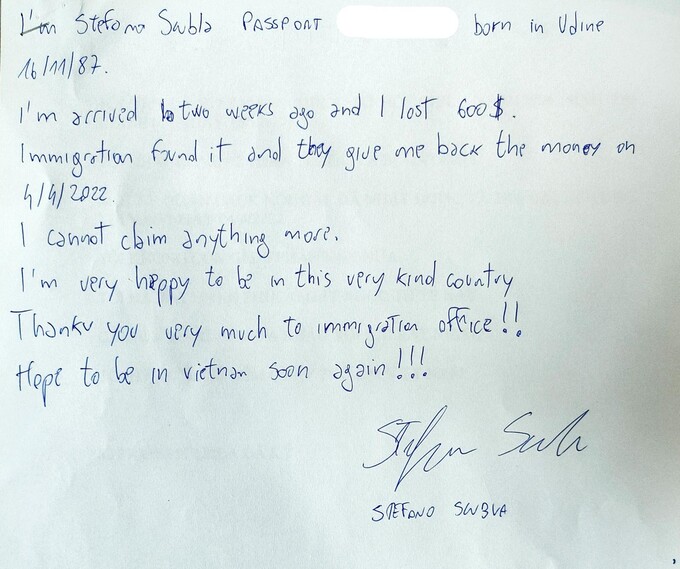 I'm Stefano PASSPORT born in Udine
16/11/87.
I'm arrived two weeks ago and I lost 600$.
Immigration found it and they give me back the money on
4/4/2022.
I cannot claim anything more.
I'm very happy to be in this very kind country
Thankv you very much to immigration office!!
Hope to be in vietnam soon again!!!
STEFANO